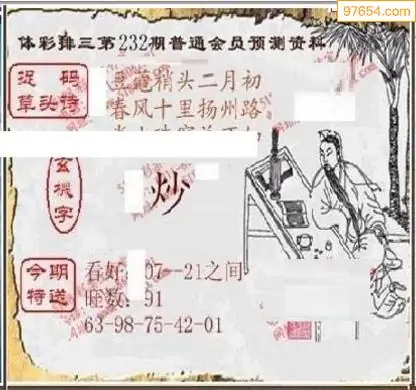 97654.com
体彩排三第232期普通会员预测资料
捉码
草头诗
豆蔻梢头二月初
春风十里扬州路
玄機字
炒
今期
特送
看好: 07--21之间
旺数: 91
63-98-75-42-01